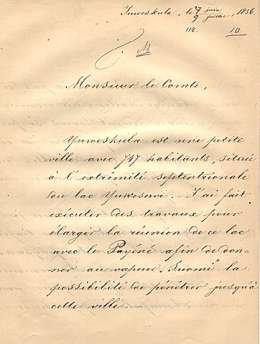 Jyweskula, le 7 juin 1856
10
Monsieur le Comte,
Yuweskula est une petite
ville avec 747 habitants, situé
à l'extrémité septentrionale
du lac Yuwesuvi. J'ai fait
exécuter des travaux pour
élargir la réunion de ce lac
avec le Païéné afin de don-
ner au vapeur Suomi la
possibilité de pénétrer jusqu'à
cette ville.